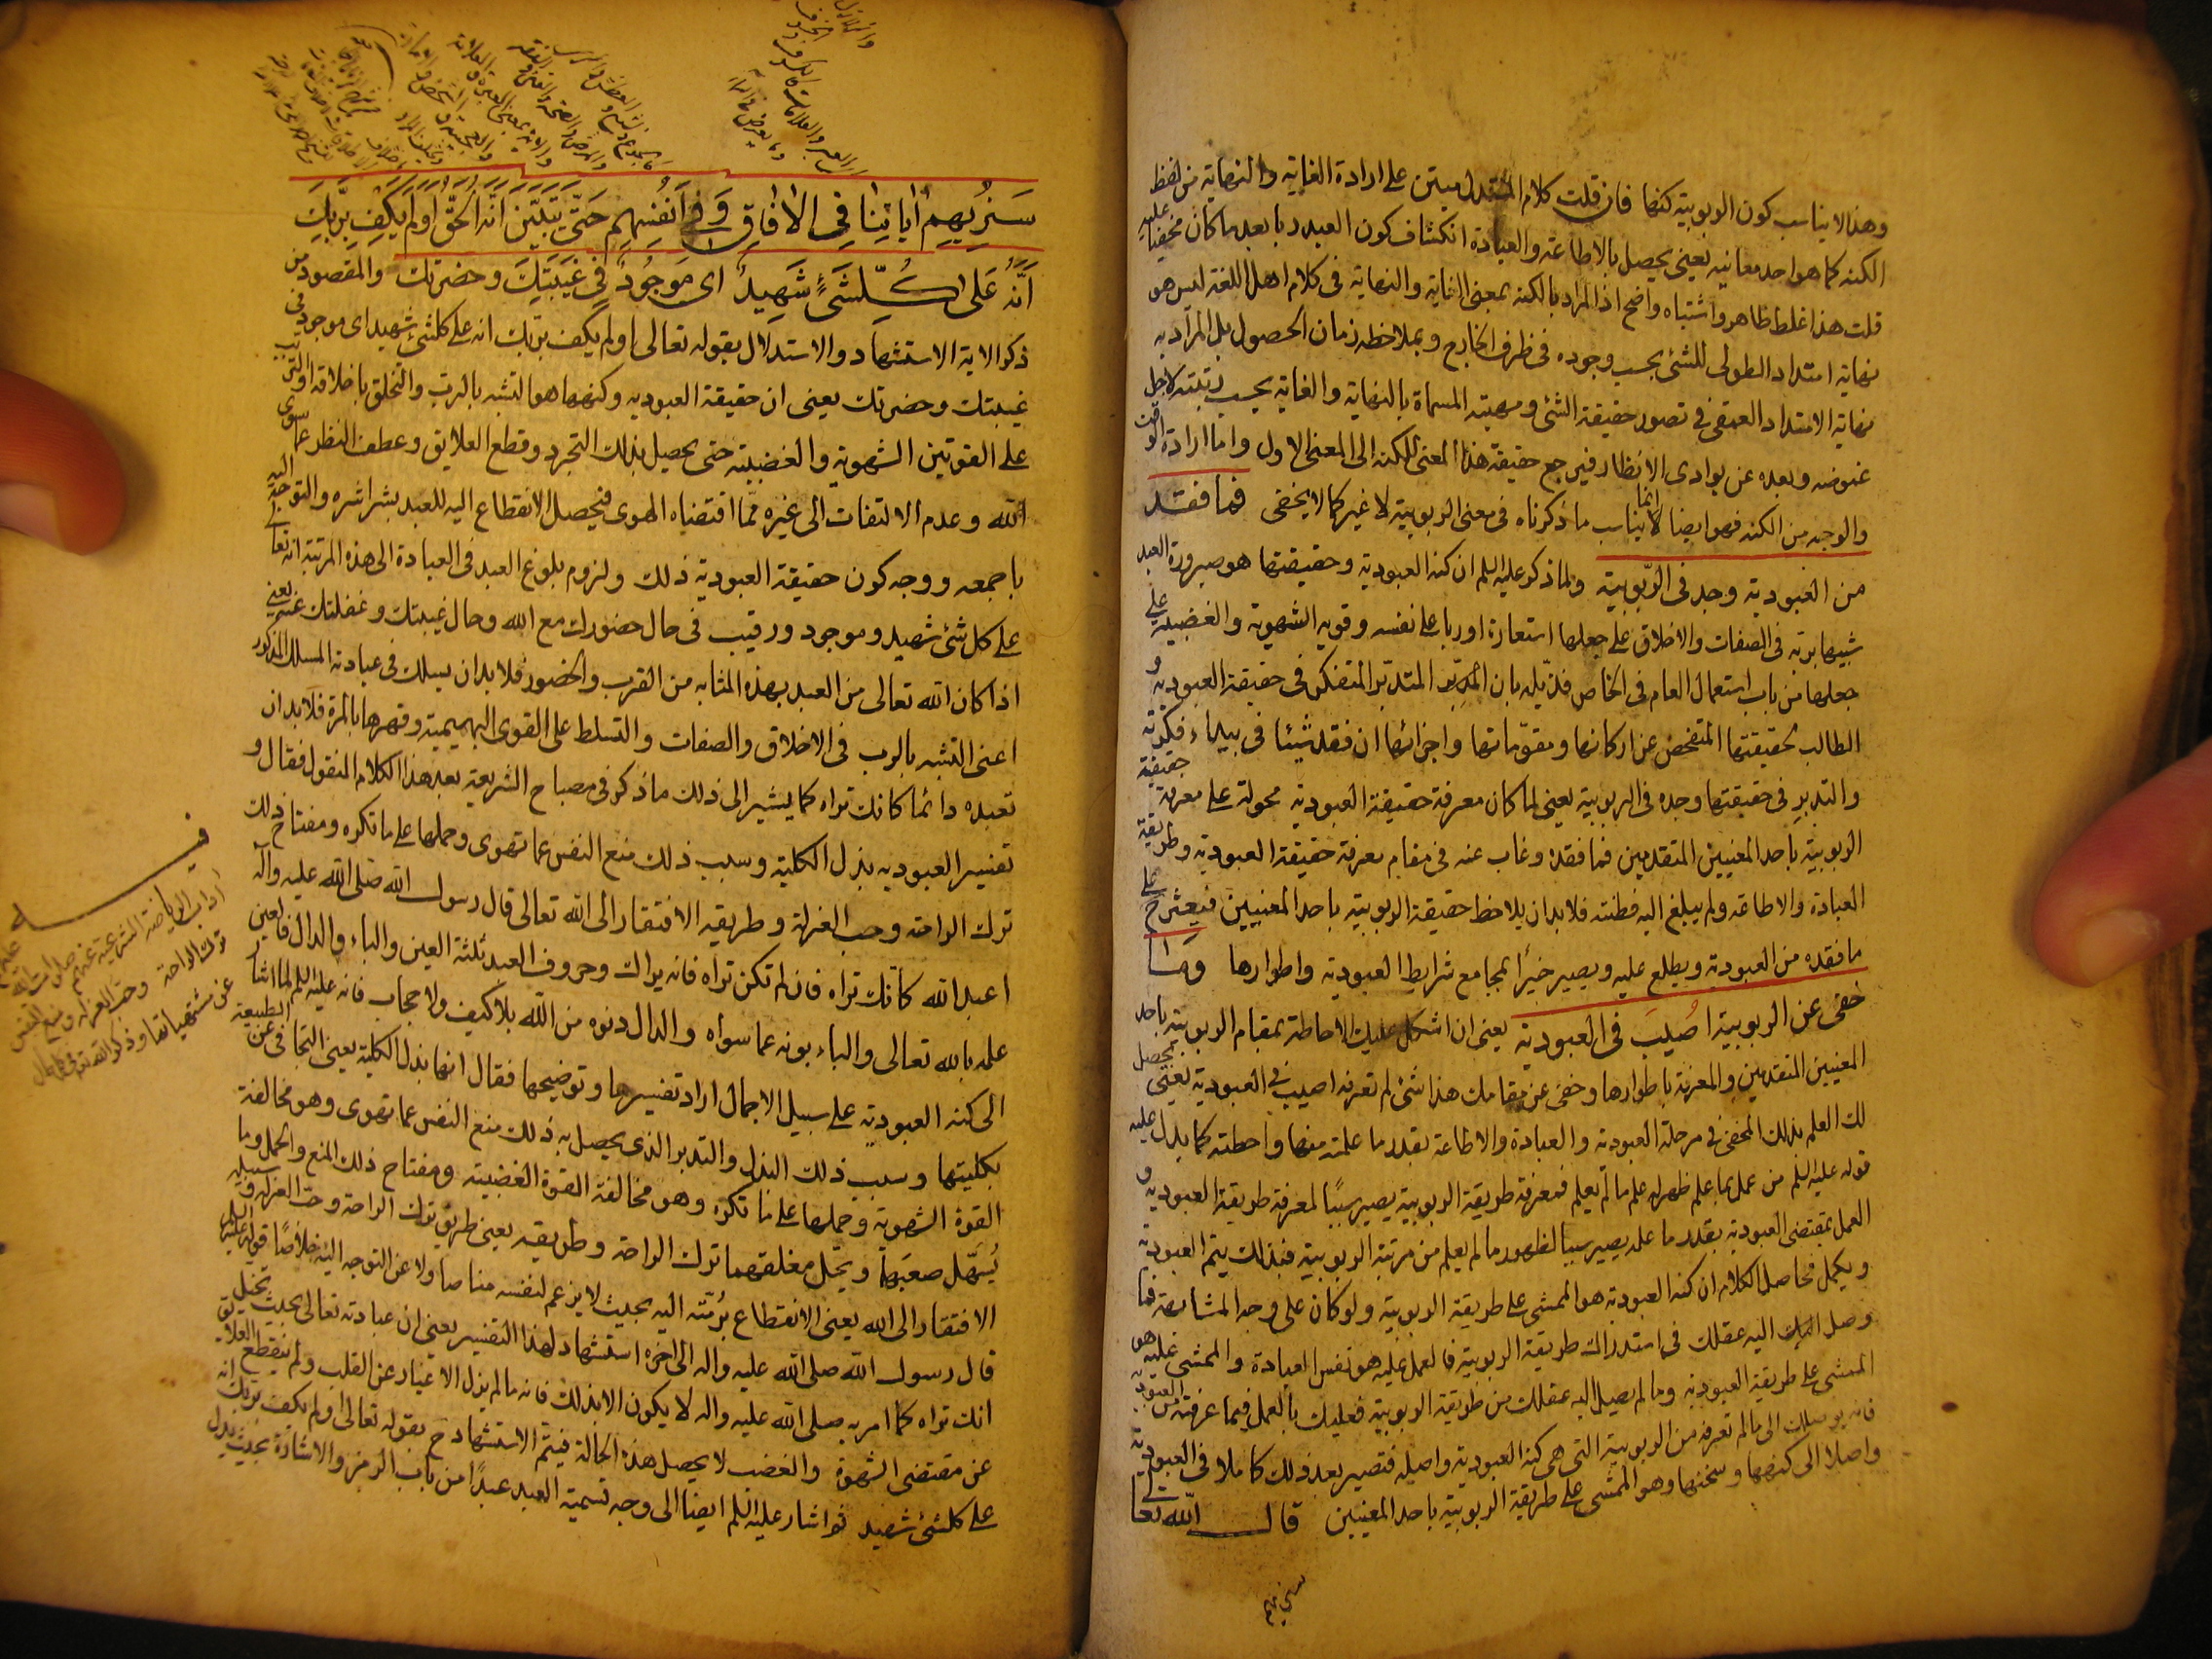 وهذا لا يناسب كون الربوبية كنهها فان قلت كلام المستدل مبتن على ارادة الغاية والنهاية من لفظ
الكنه كما هو احد معانيه يعنى يحصل بالاطاعة والعبادة انكشاف كون العبد ربا بعد ما كان مخفيا عليه
قلت هذا غلط ظاهر واشتباه واضح اذ المراد بالكنه بمعنى الغاية والنهاية فى كلام اهل اللغة ليس هو
نهاية امتداد الطولى للشئ بحسب وجوده فى ظرف الخارج وبملاحظه زمان الحصول بل المراد به
نهاية الامتداد العمقى فى تصور حقيقة الشئ ومهيته المسماة بالنهاية والغاية بحسب رتبته لاجل
غموضه وبعده عن بوادى الانظار فيرجع حقيقة هذا المعنى للكنه الى المعنى الاول واما ارادة الوقت
والوجه من الكنه فهو ايضا لا يناسب ما ذكرناه فى معنى الربوبية لا غير كما لا يخفى فما فقد
من العبودية وجد فى الربوبية ولما ذكر عليه السلم ان كنه العبودية وحقيقتها هو صيرورة العبد
شبيها بربه فى الصفات والاخلاق على جعلها استعارة او ربا على نفسه وقويه الشهوية والغضبية على
جعلها من باب استعمال العام فى الخاص فذيله بان المدبر المتدبر المتفكر فى حقيقة العبودية و
الطالب لحقيقتها المتفحص عن اركانها ومقوماتها واجزائها ان فقد شيئا فى بيداء فكرته
والتدبر فى حقيقتها وجده فى الربوبية يعنى لما كان معرفة حقيقة العبودية محولة على معرفة حقيقة
الربوبية باحد المعنيين المتقدمين فما فقده وغاب عنه فى مقام معرفة حقيقة العبودية وطريقة
العبادة والاطاعة ولم يبلغ اليه فطنته فلا بد ان يلاحظ حقيقة الربوبية باحد المعنيين فيعثر ح على
ما فقده من العبودية ويطلع عليه ويصير خبيرا بمجامع شرايط العبودية واطوارها وما
خفى عن الربوبية اصيب فى العبودية يعنى ان اشكل عليك الاحاطة بمقام الربوبية باحد
المعنيين المتقدمين والمعرفة باطوارها وخفى عن مقامك هذا شئ لم تعرفه اصيب فى العبودية يعنى يحصل
لك العلم بذلك المخفى فى مرحلة العبودية والعبادة والاطاعة بقدر ما علمته منها واحطته كما يدل عليه
قوله عليه السلم من عمل بما علم ظهر له علم ما لم يعلم فمعرفة طريقة الربوبية يصير سببا لمعرفة طريقة العبودية و
العمل بمقتضى العبودية بقدر ما علمه يصير سببا لظهور ما لم يعلم من مرتبة الربوبية فبذلك يتم العبودية
ويكمل فحاصل الكلام ان كنه العبودية هو الممشى على طريقة الربوبية ولو كان على وجه المشابهة فما
وصل اليه عقلك فى استدراك طريقة الربوبية فالعمل عليه هو نفس العبادة والممشى عليه هو
الممشى على طريقة العبودية وما لم يصل اليه عقلك من طريقة الربوبية فعليك بالعمل فيما عرفته من العبودية
فانه يوصلك الى ما لم تعرفه من الربوبية التى هى كنه العبودية واصله فتصير بعد ذلك كاملا فى العبودية
واصلا الى كنهها وسنخها وهو الممشى على طريقة الربوبية باحد المعنيين قال الله تعالى
سنريهم
سَنُرِيهِم آيَاتِنَا فِى الآفَاقِ وَفِى اَنْفُسِهِم حَتَّى يَتَبَيَّنَ اَنَّهُ الحَقُّ اَوَلَم يَكْفِ بِرَبِّكَ
اَنَّهُ عَلَى كُلِّشَئٍ شَهِيدٌ اى مَوجُودٌ فِى غَيبَتِكَ وحضرتك والمقصود من
ذكر الاية الاستشهاد والاستدلال بقوله تعالى اولم يكف بربك انه على كلشئ شهيد اى موجود فى
غيبتك وحضرتك يعنى ان حقيقة العبوديه وكنهها هو التشبه بالرب والتخلق باخلاقه او الترب
على القوتين الشهوية والغضبية حتى يحصل بذلك التجرد وقطع العلايق وعطف النظر عما سوى
الله وعدم الالتفات الى غيره مما اقتضاه الهوى فيحصل الانقطاع اليه للعبد بشراشره والتوجه اليه
باجمعه ووجه كون حقيقة العبودية ذلك ولزوم بلوغ العبد فى العبادة الى هذه المرتبة انه تعالى
على كل شئ شهيد وموجود ورقيب فى حال حضورك مع الله وحال غيبتك وغفلتك عنه يعنى
اذا كان الله تعالى من العبد بهذه المثابه من القرب والحضور فلا بد ان يسلك فى عبادته المسلك المذكور
اعنى التشبه بالرب فى الاخلاق والصفات والتسلط على القوى البهيمية وقهرها بالمرة فلا بد ان
تعبده دائما كانك تراه كما يشير الى ذلك ما ذكر فى مصباح الشريعة بعد هذا الكلام المنقول فقال و
تفسير العبوديه بذل الكلية وسبب ذلك منع النفس عما تهوى وحملها على ما تكره ومفتاح ذلك
ترك الراحة وحب العزلة وطريقه الافتقار الى الله تعالى قال رسول الله صلى الله عليه وآله
اعبد الله كانك تراه فان لم تكن تراه فانه يراك وحروف العبد ثلثة العين والباء والدال فالعين
علمه بالله تعالى والباء بونه عما سواه والدال دنوه من الله بلا كيف ولا حجاب فانه عليه السلم لما اشار
الى كنه العبودية على سبيل الاجمال اراد تفسيرها وتوضيحها فقال انها بذل الكلية يعنى التجافى عن الطبيعة
بكليتها وسبب ذلك البذل والتدبر الذى يحصل به ذلك منع النفس عما تهوى وهو مخالفة
القوة الشهوية وحملها على ما تكره وهو مخالفة القوة الغضبية ومفتاح ذلك المنع والحمل وما
يُسهّل صعبها ويحل مغلقهما ترك الراحة وحب العزلة وطريقه يعنى طريق ترك الراحة وحب العزلة وسبيله
الافتقار الى الله يعنى الانقطاع برمّته اليه بحيث لا يزعم لنفسه مناصا ولا عن التوجه اليه خلاصًا قوله عليه السلم
قال رسول الله صلى الله عليه واله الى اخره استشهاد لهذا التفسير يعنى ان عبادته تعالى بحيث تخيل
انك تراه كما امر به صلى الله عليه واله لا يكون الا بذلك فانه ما لم يزل الاغيار عن القلب ولم ينقطع العلايق
عن مقتضى الشهوة والغضب لا يحصل هذه الحالة فيتم الاستشهاد ح بقوله تعالى اولم يكف بربك انه
على كلشئ شهيد ثم اشار عليه السلم ايضا الى وجه تسمية العبد عبدًا من باب الرمز والاشارة بحيث يدل
آداب الرياضة الشرعية
ترك الراحة وحب العزلة ومنع النفس
عن مشتهياتها وذكر الله تعالى